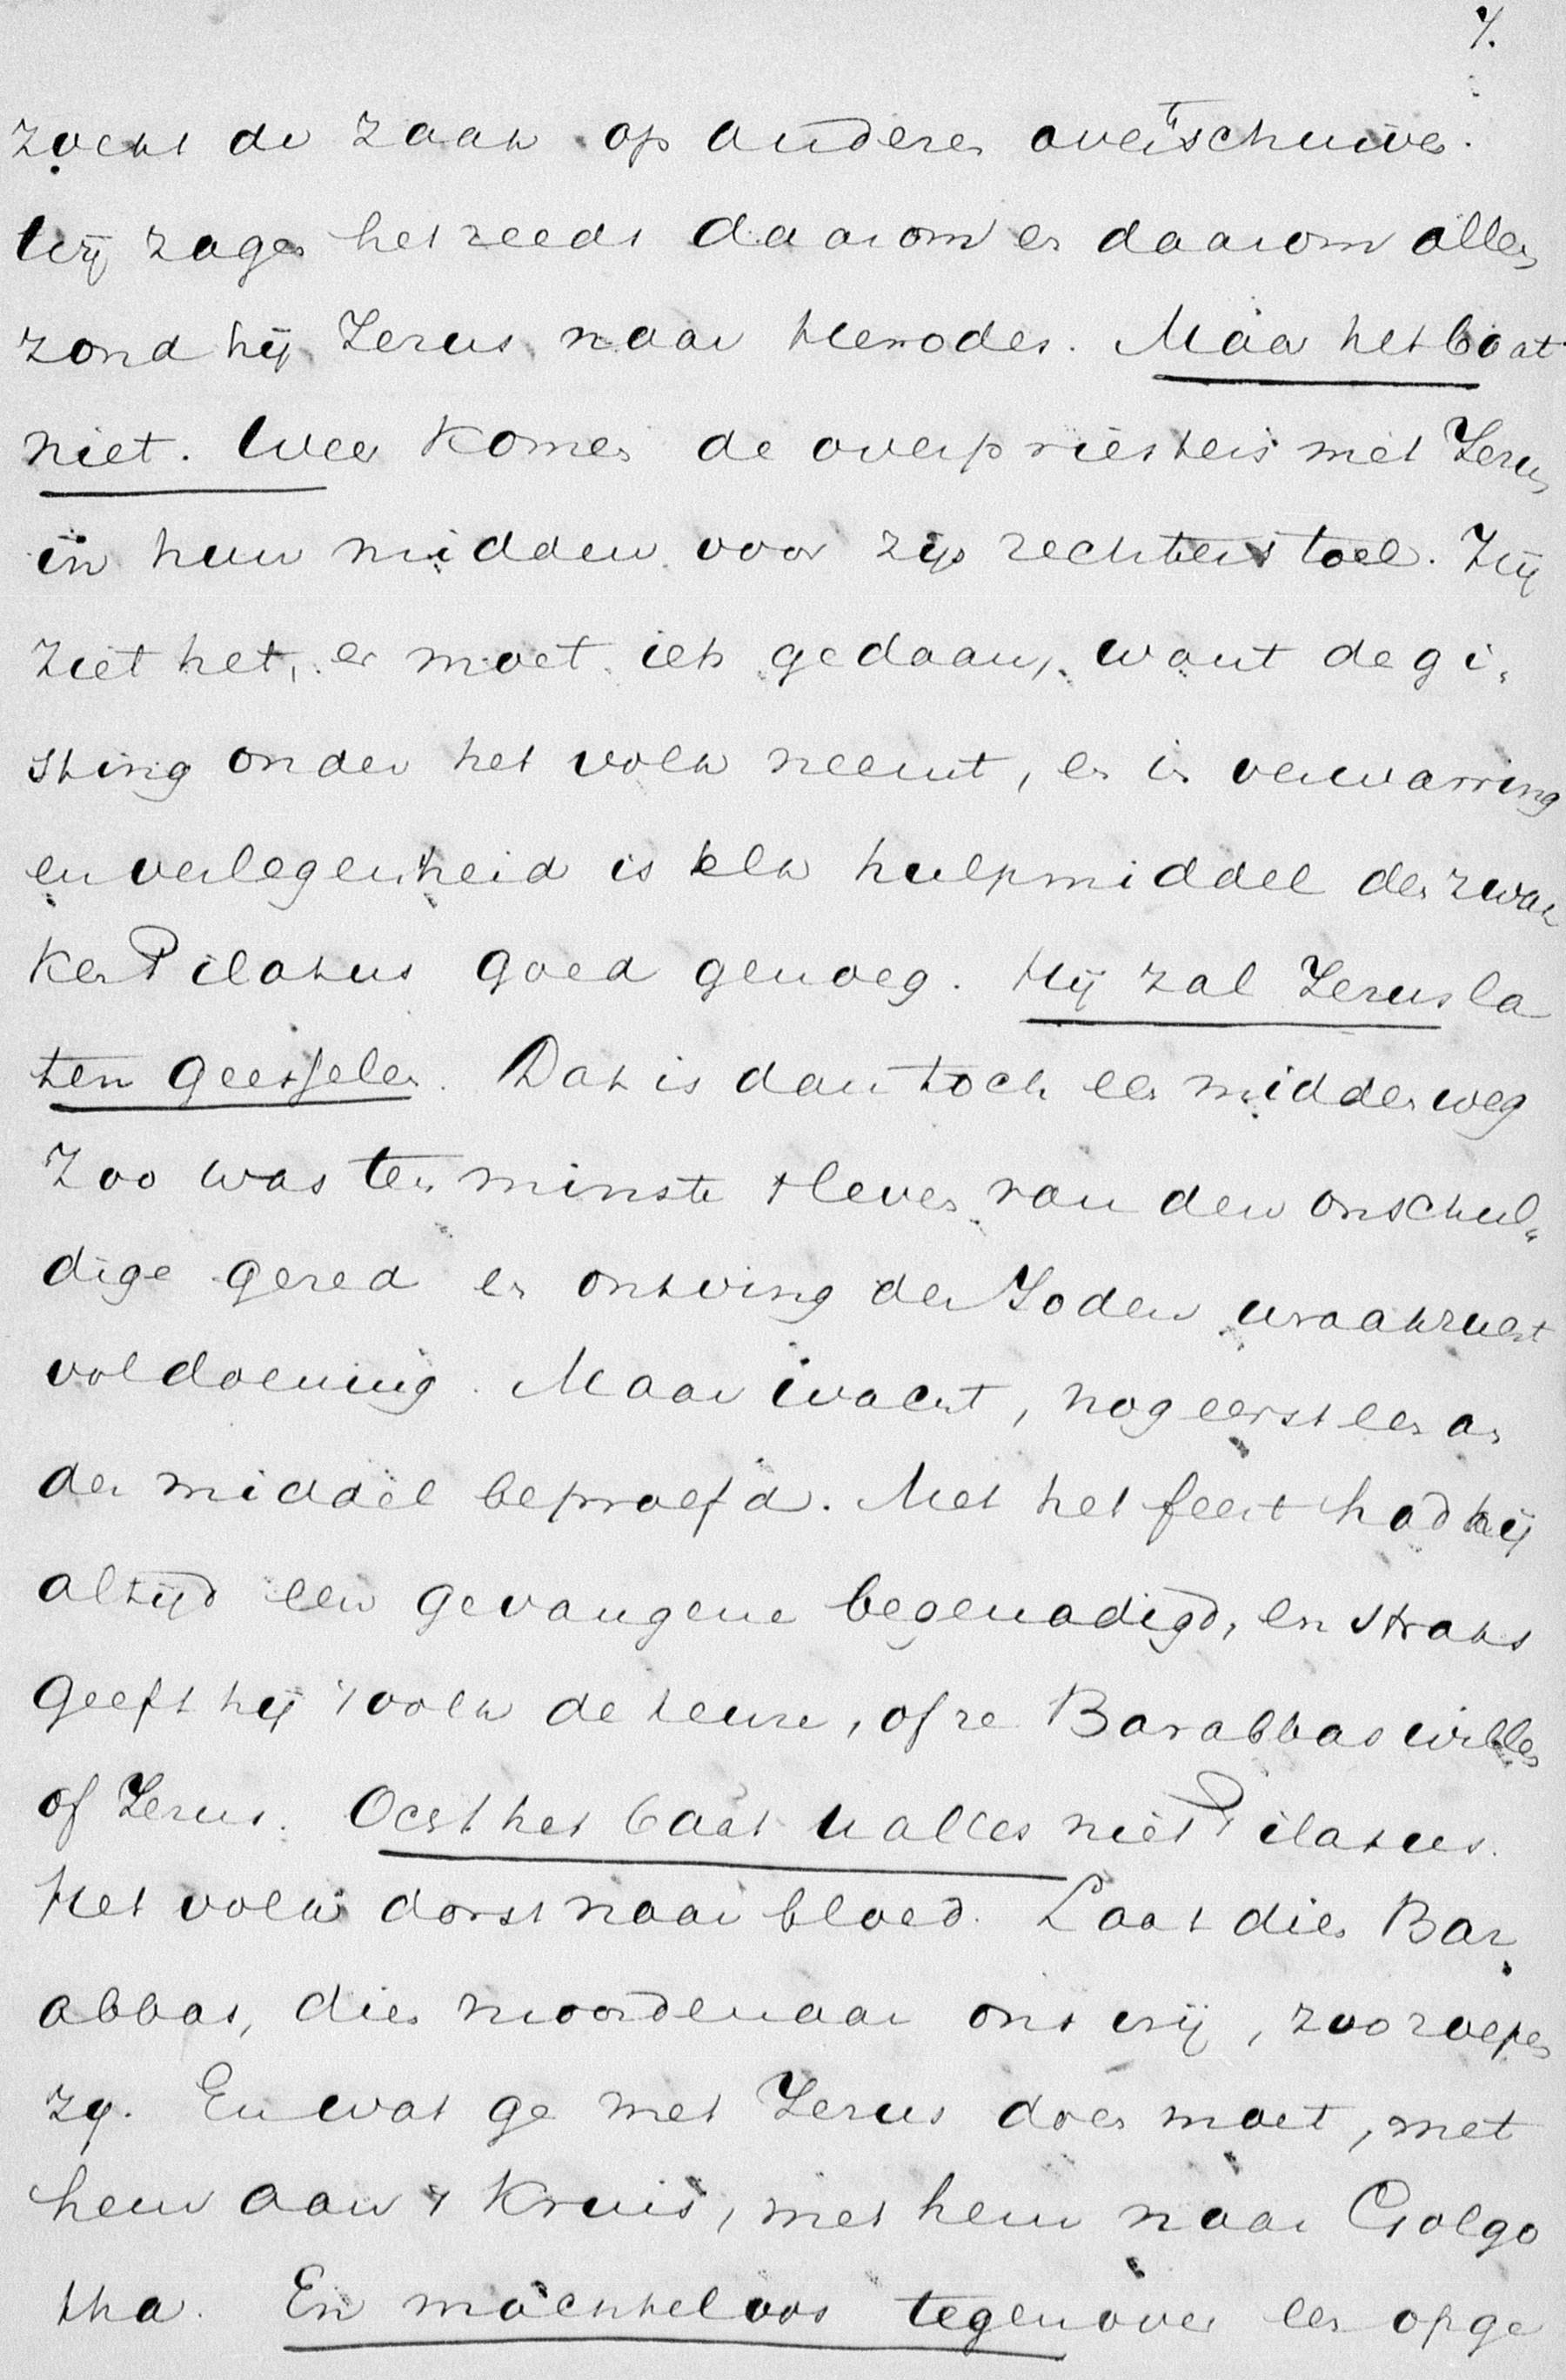 7.
zocht de zaak op anderen overschuiven.
Wij zagen het reeds daarom en daarom alleen
zond hij Jezus naar Herodes. Maar het baat
niet. Weer komen de overpriesters met Jezus
in hun midden voor zijn rechterstoel. Hij
ziet het, er moet iets gedaan, want de gi-
sting onder het volk neemt, er is verwarring
en verlegenheid is elk hulpmiddel den zwak
ken Pilatus goed genoeg. Hij zal Jezus la
ten geesselen. Dat is dan toch een middenweg
Zoo was ten minste 't leven van den onschul-
dige gered en ontving der Joden wraakzucht
voldoening. Maar wacht, nog eerst een an
der middel beproefd. Met het feest had hij
altijd een gevangene begenadigd, en straks
geeft hij 't volk de keuze, of ze Barabbas willen
of Jezus. Och het baat u alles niet Pilatus.
Het volk dorst naar bloed. Laat dien Bar
abbas, dien moordenaar ons vrij, zoo roepen
zij. En wat ge met Jezus doen moet, met
hem aan 't kruis, met hem naar Golgo
tha. En machteloos tegenover een opge